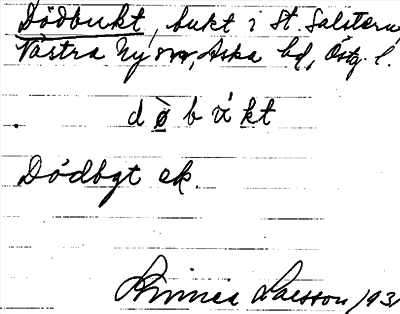 Dödbukt, bukt i St. Salstern,
Västra Ny sn, Aska hd, Östg. l.
d ø b ù kt
Dödbgt ek.
Linnea Larsson 1931